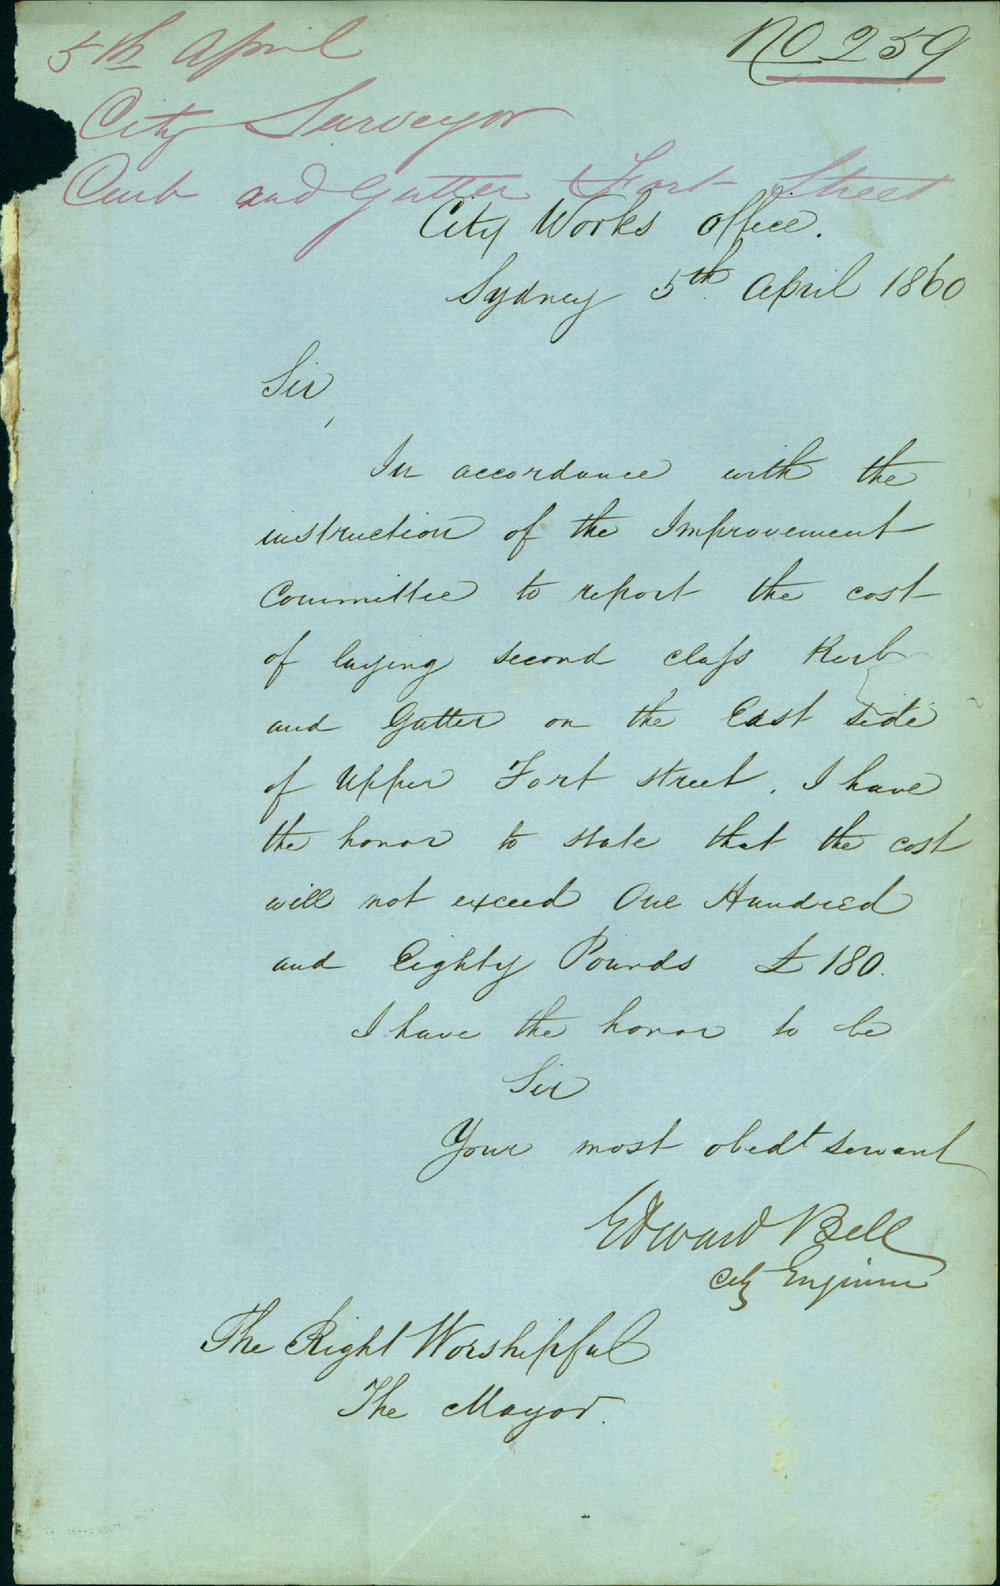 No 259
5th April
City Surveyor
Curb and Gutter Fort Street
City Works Office.
Sydney 5th April 1860
Sir,
In accordance with the
instruction of the Improvement
Committee to report the cost
of laying second claſs Kerb
and Gutter on the East side
of Upper Fort street, I have
the honor to state that the cost
will not exceed One Hundred
and Eighty Pounds £180.
I have the honor to be
Sir
Your most obedt servant
Edward Bell
City Engineer
The Right Worshipful
The Mayor.